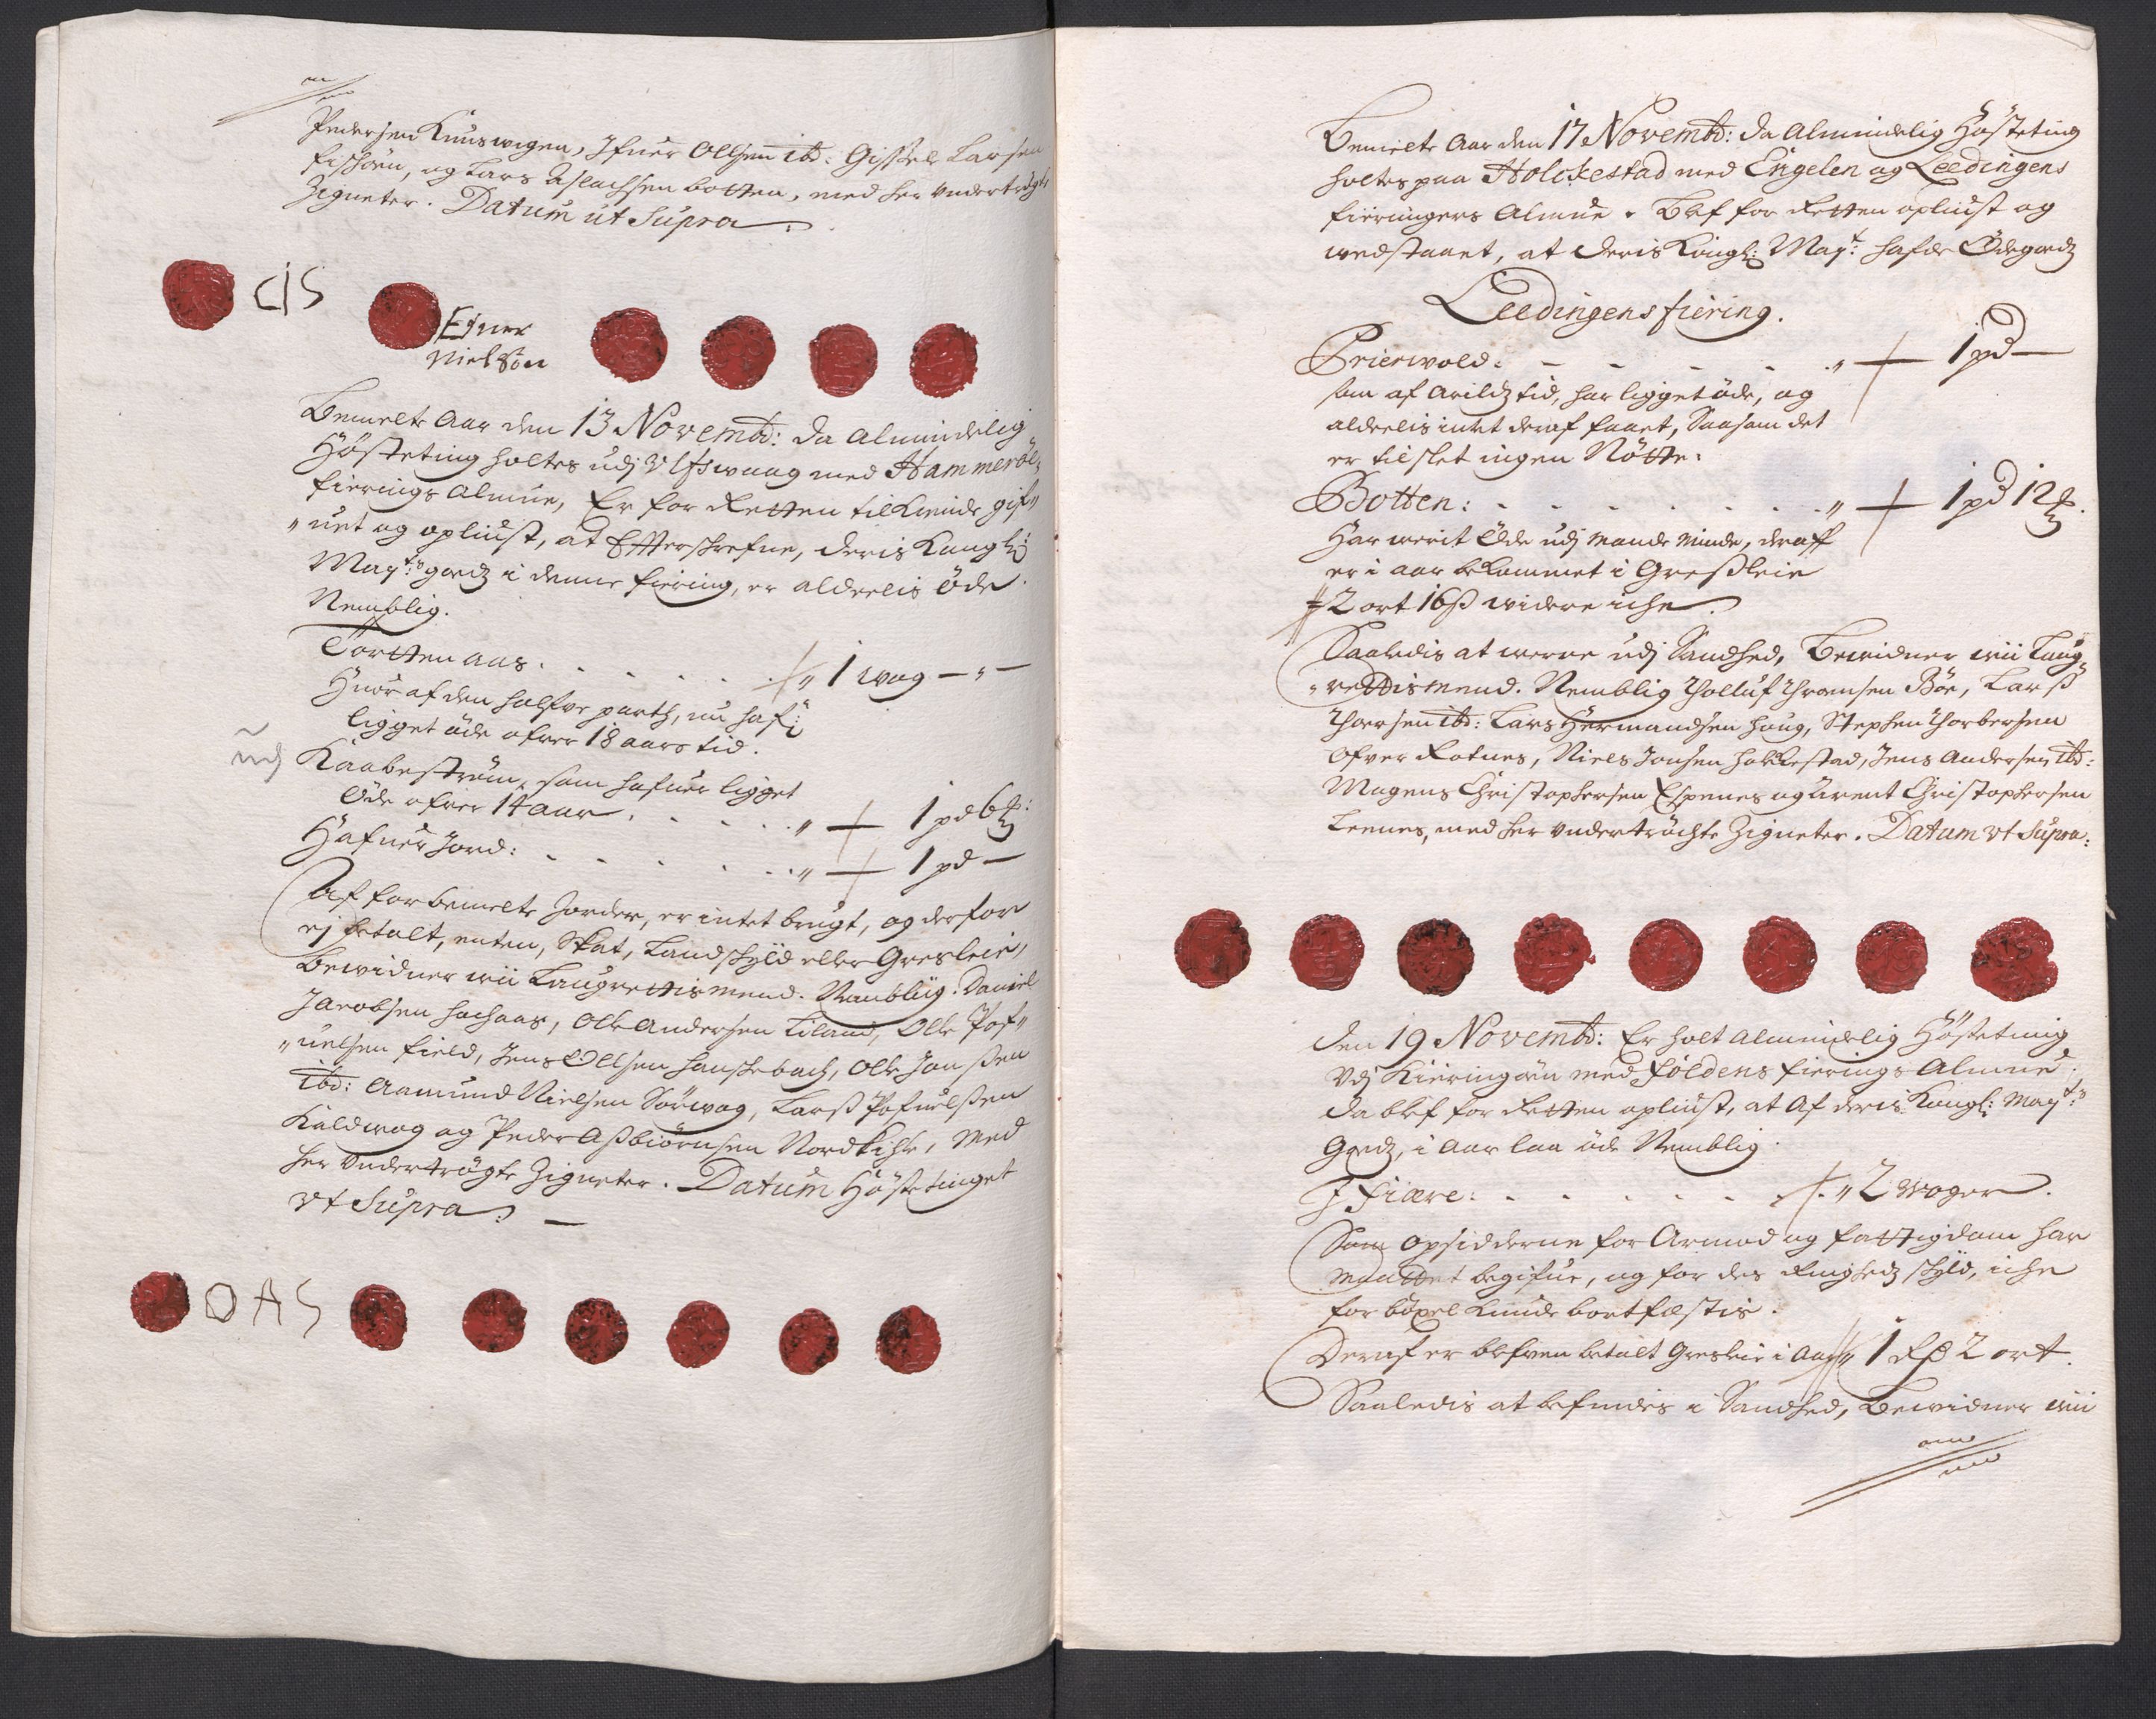 Pedersen Kunswigen, Ifuer Ollsen ibd: Gissel Larsen
fischøen, og Lars Aslachsen botten, med her undertrögte
Zigneter. Datum ut Supra.
CIS
Efuer
Nielssøn
Bemelte Aar den 13 Novembr: da Almindelig
Hösteting holtes udj Ulfswaag med Hammeröe
fierings Almue, Er for Retten tilkiende gif„
„uet og opliust, at Efterschrefne, deris Kongl:
Mayts: godz i denne fiering, er alderlis öde
Nemblig.
Torttenaas . . . . . . „ 1 wog — „ —
Huor af den halfve parth, nu haf:r
ligget öde ofver 18 aars tid.
Kaabestrøm, som hafuer ligget
Öde ofver 14 aar . . . . „ — 1 pd 6 ℔:
Hafner Jord: . . . . . „ — 1 pd —
Af forbemelte Jorder, er intet brugt, og derfor
ej betalt, enten, Skat, Landschyld eller Gresleie,
Bewidner wii Laugrettismend. Namblig. Daniel
Jacobsen hachaas, Olle Andersen Liland, Olle Pof„
„uelsen field, Jens Ollsen hanschebach, Olle Jonssen
ibd: Aamund Nielsen Sörwog, Larss Pofuelssen
Kaldwog og Peder Assbiörnsen Nordkihl, Med
her undertrögte Zigneter. Datum Höstetinget
ut Supra. —
OAS
Bemelte Aar den 17 Novembr: da Almindelig Hösteting
holtes paa Holckestad med Engelen og Leedingens
fierungers Almue. Blef for Retten opliust og
wedstaaet, at deris Kongl: Mayt: hafde Ödegodz
Leedingens fiering.
Grierwold: - - - - . „ — 1 pd —
som af Arildz tid, har ligget öde, og
alderlis intet deraf faaet, Saasom det
er til slet ingen Nötte.
Botten: . . . . . . . „ — 1 pd 12 ℔.
Har werit Öde udj Mands Minde, deraff
er i aar bekommet i Gressleie
2 ort 16 ß widere iche.
Saaledis at were udj Sandhed, Bewidner wii Laug„
„rettismend. Nemblig Tholluf Thromsen Böe, Larss
Thorsen ibd: Lars Hermandsen haug, Stephen Thorbersen
Ofver Rotnes, Niels Jonsen Holkestad, Jens Andersen ibd:
Mogens Christophersen Espenes og Arent Christophersen
Leenes, med her undertröchte Zigneter. Datum ut Supra:
den 19 Novembr: Er holt Almindelig Hösteting
Udj Kieringøen med foldens fierings Almue,
da blef for Retten opliust, at Af deris Kongl: Mayts:
Godz, i Aar laa öde Nemblig.
I fiære: . . . . . . . „ 2 woger.
Som Opsidderne for Armod og fattigdom har
maattet begifue, og for des Ringhedz schyld, iche
for böxel kunde bortfæstis.
Deraf er blefven betalt Gresleie i Aar „ 1 Rd 2 ort.
Saaledis at befindes i Sandhed, Bewidner wii